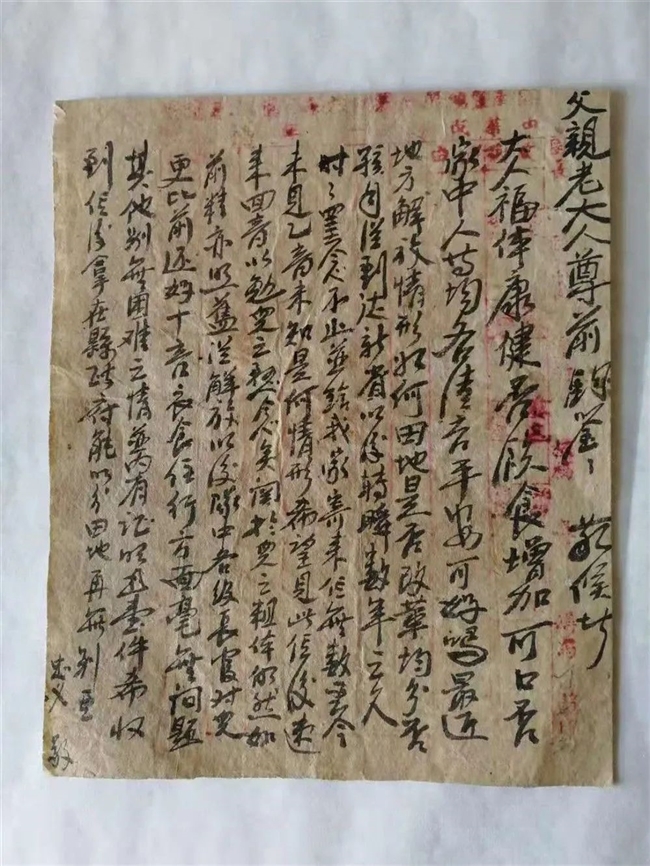 父親老大人尊前 敬候
大人福体康健否飲食增加可口否
家中人等均各清吉平安可好嗎最近
地方解放情形如何田地是否改革均分否
孩自從到达新省以後轉瞬数年之久
时々罣念不止並給我家寄来信無数封今
未見乙音未知是何情形希望見此信後速
来回音以勉兒之想念矣関於兒之粗体仍然如
前精亦照舊從解放以後隊中各级長官対兒
更比前还好十音衣食住行方面毫無问題
其他别無困难之情並内有证明書壹件希收
到信後拿在縣政府能以分田地再無别
敬